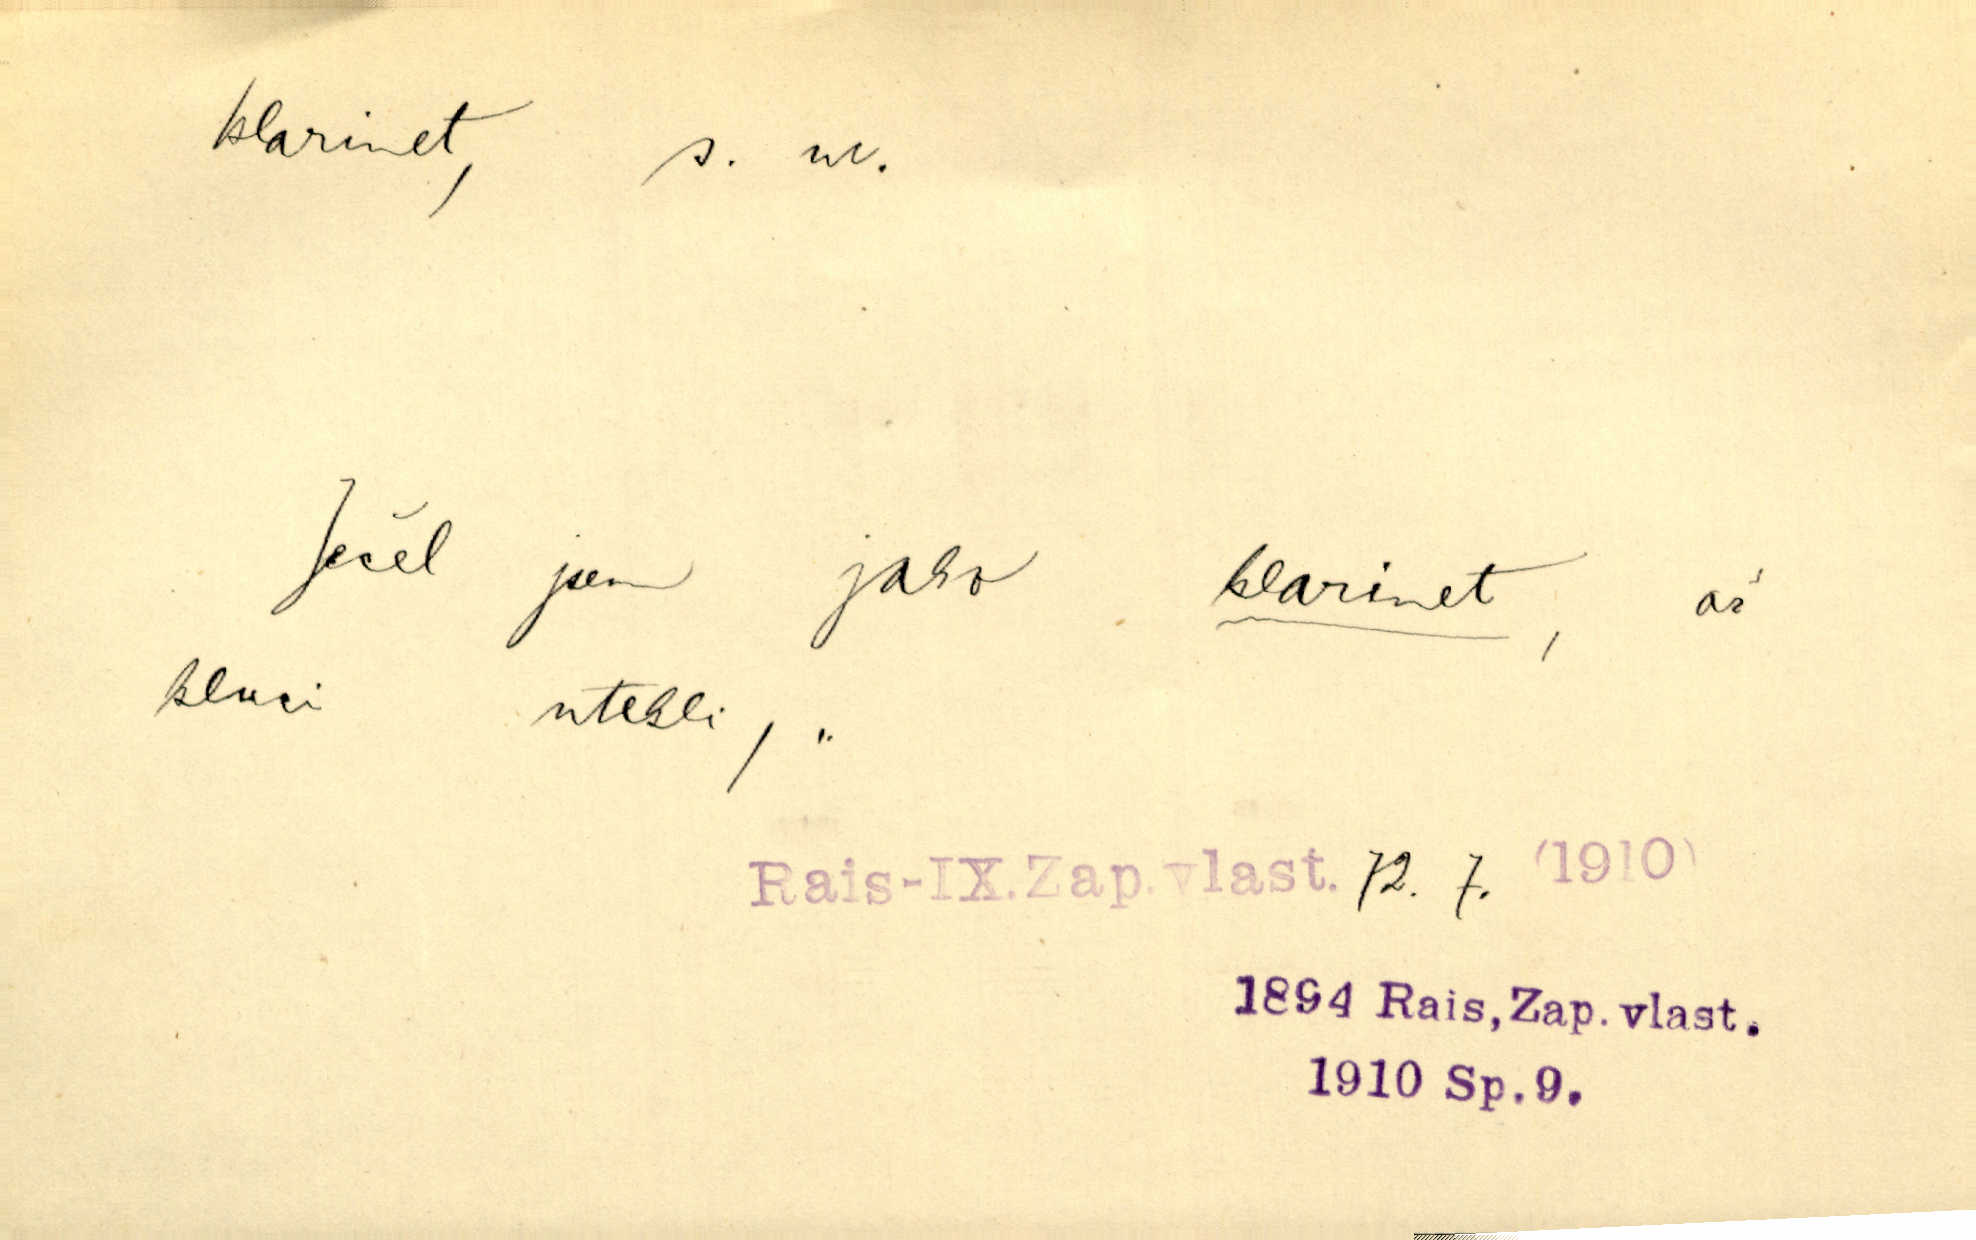 klarinet, s. m.
Ječel jsem jako klarinet, až
kluci utekli, "
Rais-IX.Zap.vlast. 72. 7. (1910)
1894 Rais, Zap. vlast.
1910 Sp. 9.